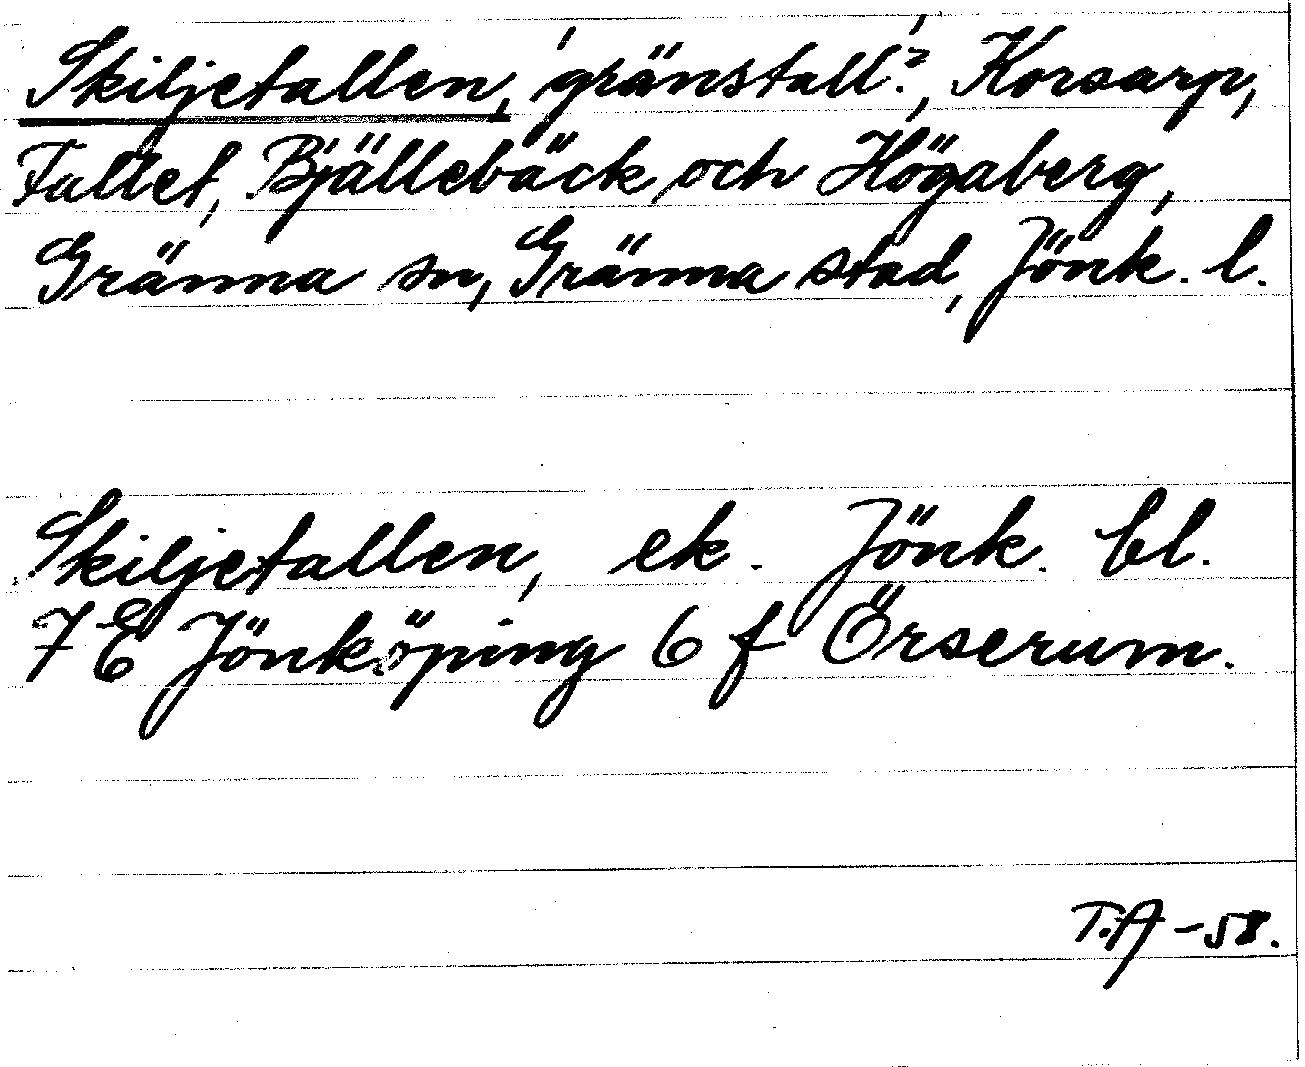 Skiljetallen, 'gränstall?', Korsarp,
Fallet, Bjällebäck och Högaberg,
Gränna sn, Gränna stad, Jönk. l.
Skiljetallen, ek. Jönk. bl.
7 E Jönköping 6 f Örserum.
T.A -58.